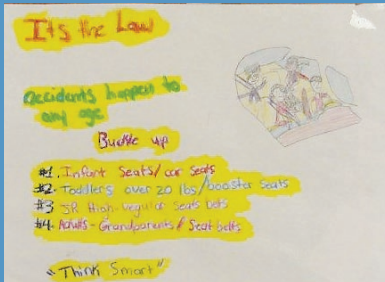 It's the Law
accidents happen to
any age
Buckle up
#1. Infant Seats/car seats
#2. Toddlers over 20 lbs/booster seats
#3 JR High-regular seats belts
#4. Adults-Grandparents/Seat belts
"Think Smart"